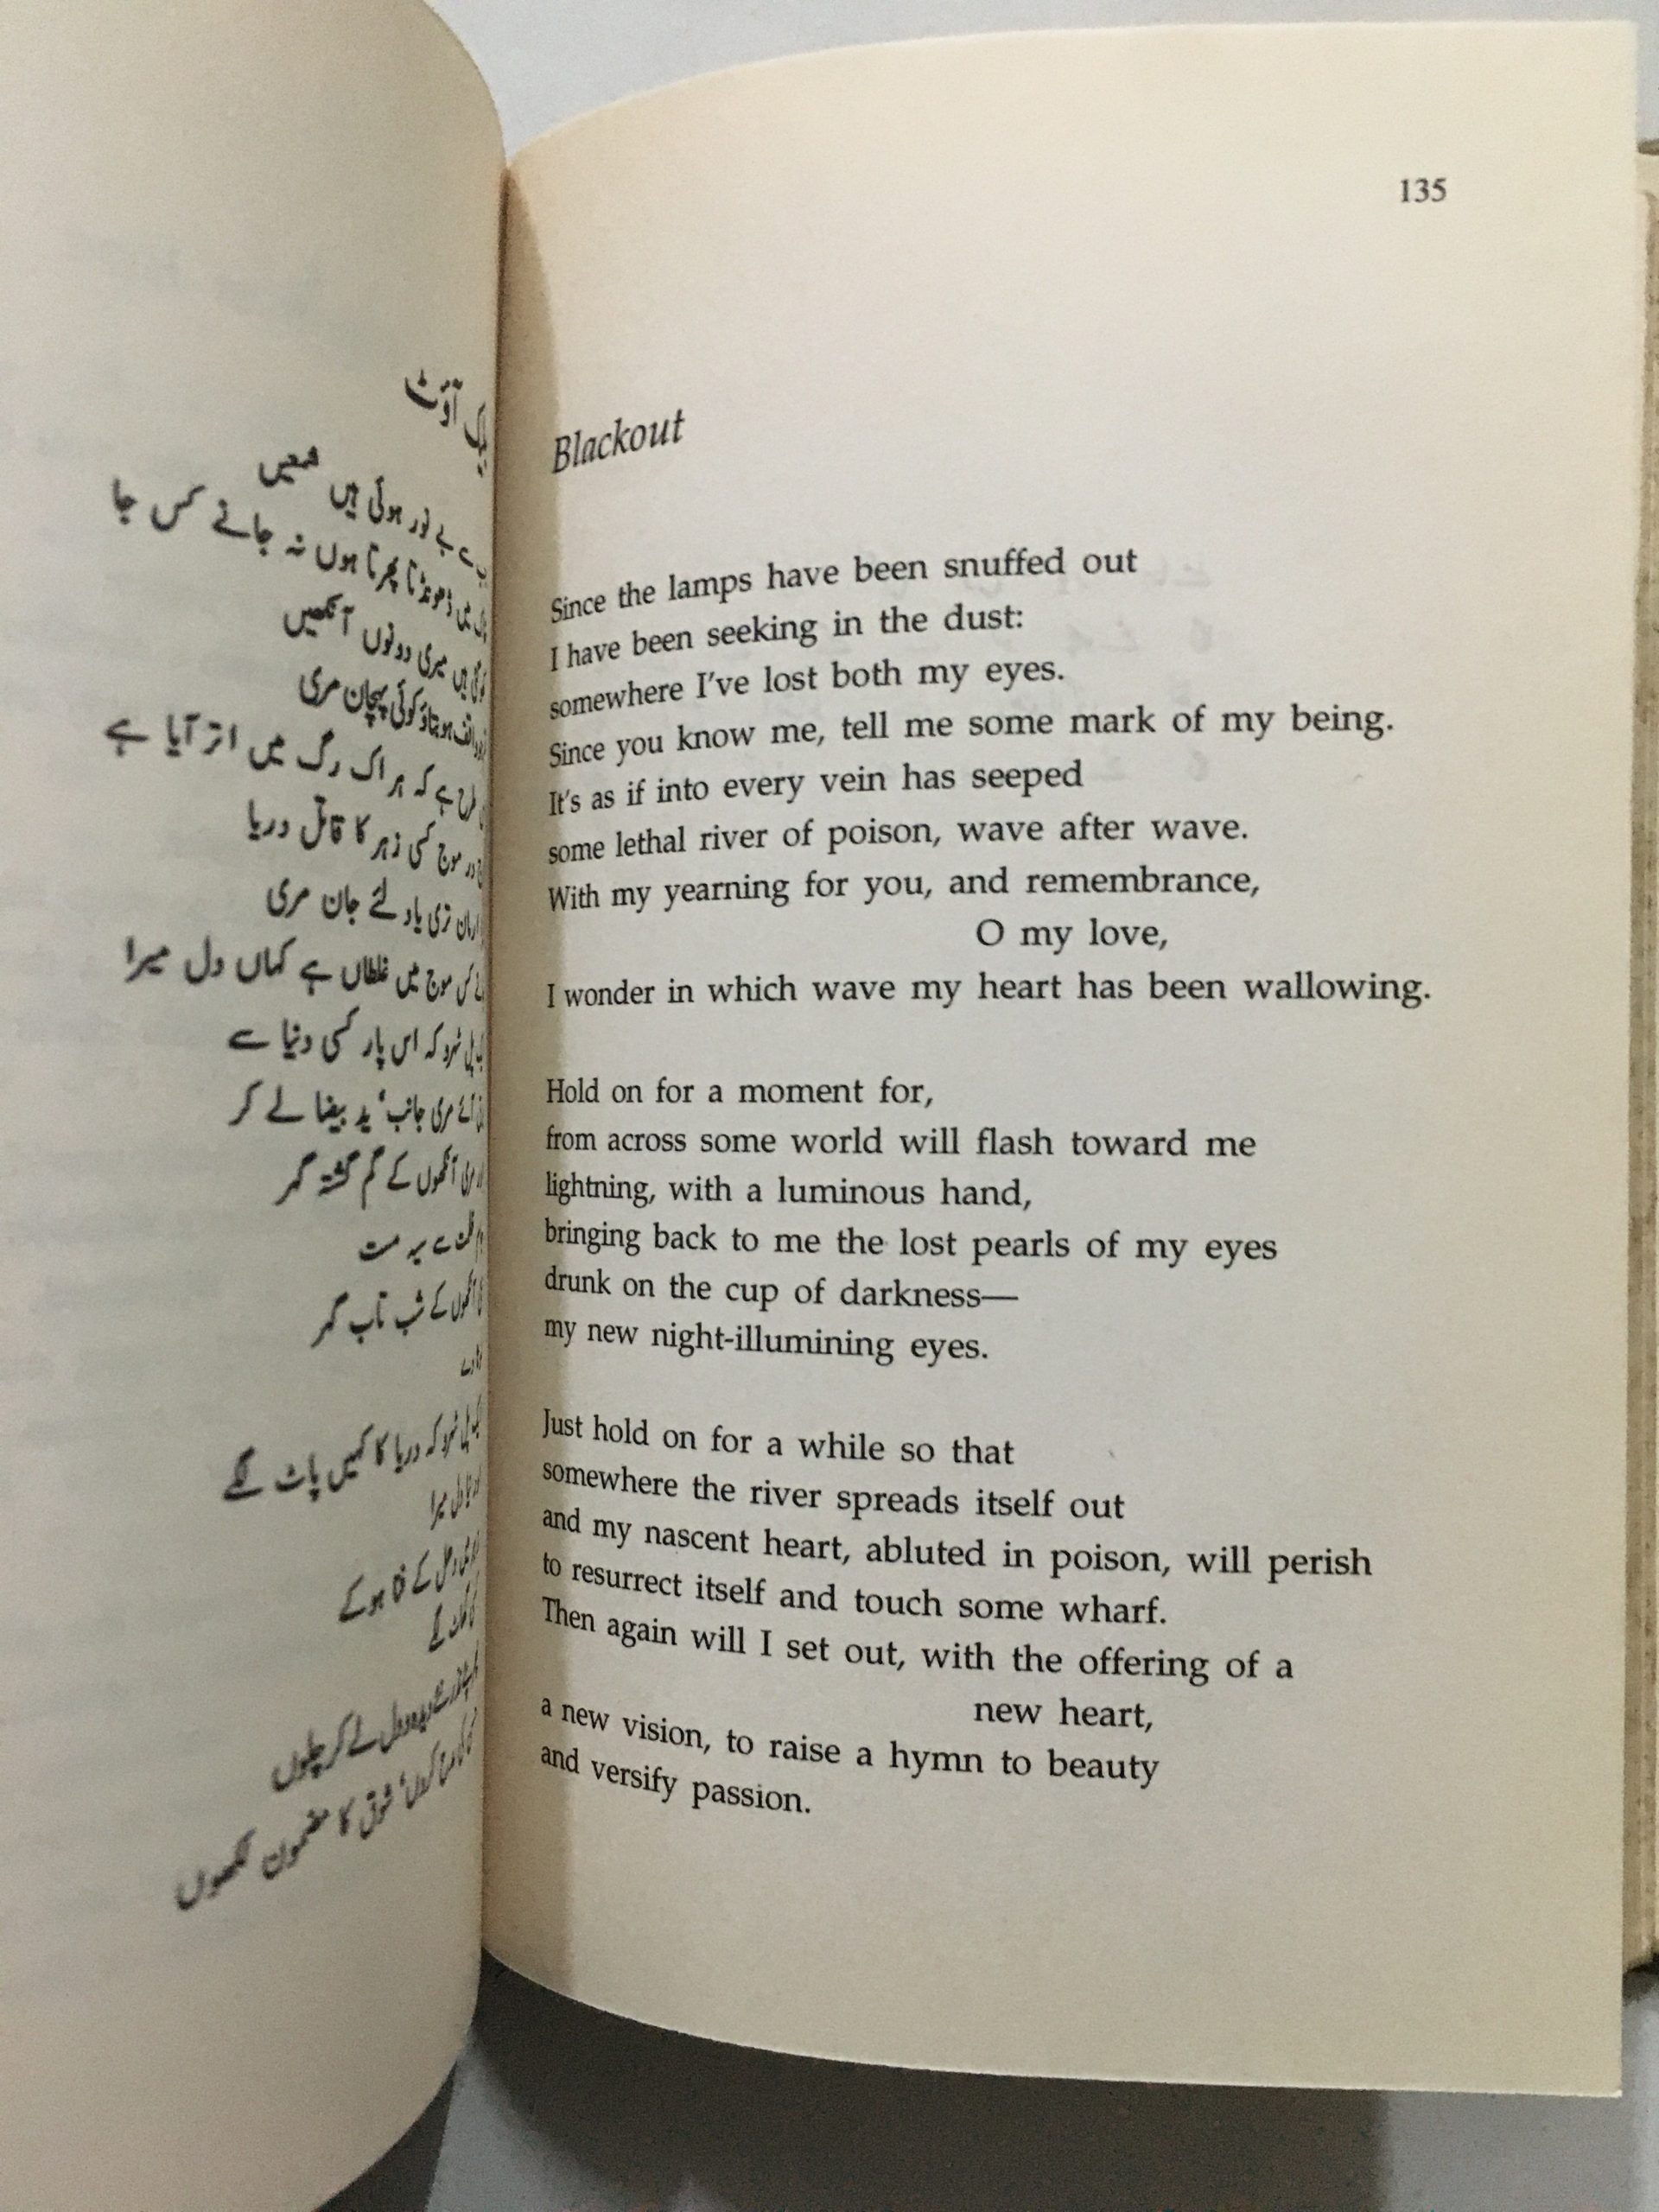 آؤٹ
بے نور ہوئی ہیں شمعیں
میں ڈھونڈتا پھرتا ہوں نہ جانے کس جا
ہیں میری دونوں آنکھیں
ہو بتاؤ کوئی پہچان مری
ہے کہ ہر اک رگ میں اتر آیا ہے
در موج کسی زہر کا قاتل دریا
تری یاد لئے جان مری
کس موج میں غلطاں ہے کہاں دل میرا
پل ٹھہرو کہ اس پار کسی دنیا سے
آئے مری جانب، ید بیضا لے کر
مری آنکھوں کے گم گشتہ گہر
سے سیہ مست
آنکھوں کے شب تاب گہر
پل ٹھہرو کہ دریا کا کہیں پاٹ لگے
دل میرا
کے فنا ہو کے
لگے
دیدہ و دل لے کر چلوں
کروں، شوق کا مضمون لکھوں
135
Blackout
Since the lamps have been snuffed out
I have been seeking in the dust:
somewhere I've lost both my eyes.
Since you know me, tell me some mark of my being.
It's as if into every vein has seeped
some lethal river of poison, wave after wave.
With my yearning for you, and remembrance,
O my love,
I wonder in which wave my heart has been wallowing.
Hold on for a moment for,
from across some world will flash toward me
lightning, with a luminous hand,
bringing back to me the lost pearls of my eyes
drunk on the cup of darkness—
my new night-illumining eyes.
Just hold on for a while so that
somewhere the river spreads itself out
and my nascent heart, abluted in poison, will perish
to resurrect itself and touch some wharf.
Then again will I set out, with the offering of a
new heart,
a new vision, to raise a hymn to beauty
and versify passion.